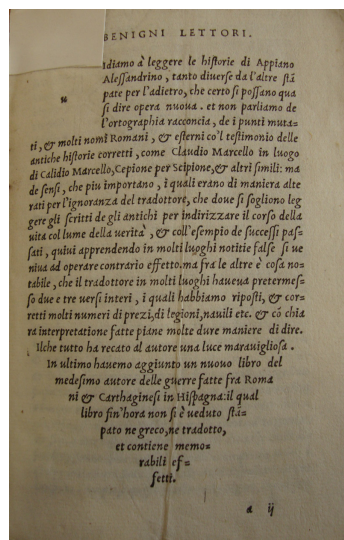 BENIGNI LETTORI.
diamo à leggere le historie di Appiano
Alessandrino, tanto diuerse da l'altre stā
pate per l'adietro, che certo si possano qua
si dire opera nuoua. et non parliamo de
l'ortographia racconcia, de i punti muta=
ti, & molti nomi Romani, & esterni co'l testimonio delle
antiche historie corretti, come Claudio Marcello in luogo
di Calidio Marcello, Cepione per Scipione, & altri simili: ma
de sensi, che piu importano, i quali erano di maniera alte
rati per l'ignoranza del tradottore, che doue si sogliono leg
gere gli scritti de gli antichi per indirizzare il corso della
uita col lume della uerità, & coll'esempio de successi pas=
sati, quiui apprendendo in molti luoghi notitie false si ue
niua ad operare contrario effetto. ma fra le altre è cosa no=
tabile, che il tradottore in molti luoghi haueua pretermes=
so due o tre uersi interi, i quali habbiamo riposti, & cor=
retti molti numeri di prezi, di legioni, nauili etc. & cō chia
ra interpretatione fatte piane molte dure maniere di dire.
Ilche tutto ha recato al autore una luce marauigliosa.
In ultimo hauemo aggiunto un nuouo libro del
medesimo autore delle guerre fatte fra Roma
ni & Carthaginesi in Hispagna: il qual
libro fin'hora non si è ueduto stā=
pato ne greco, ne tradotto,
et contiene memo=
rabili ef=
fetti.
a ij